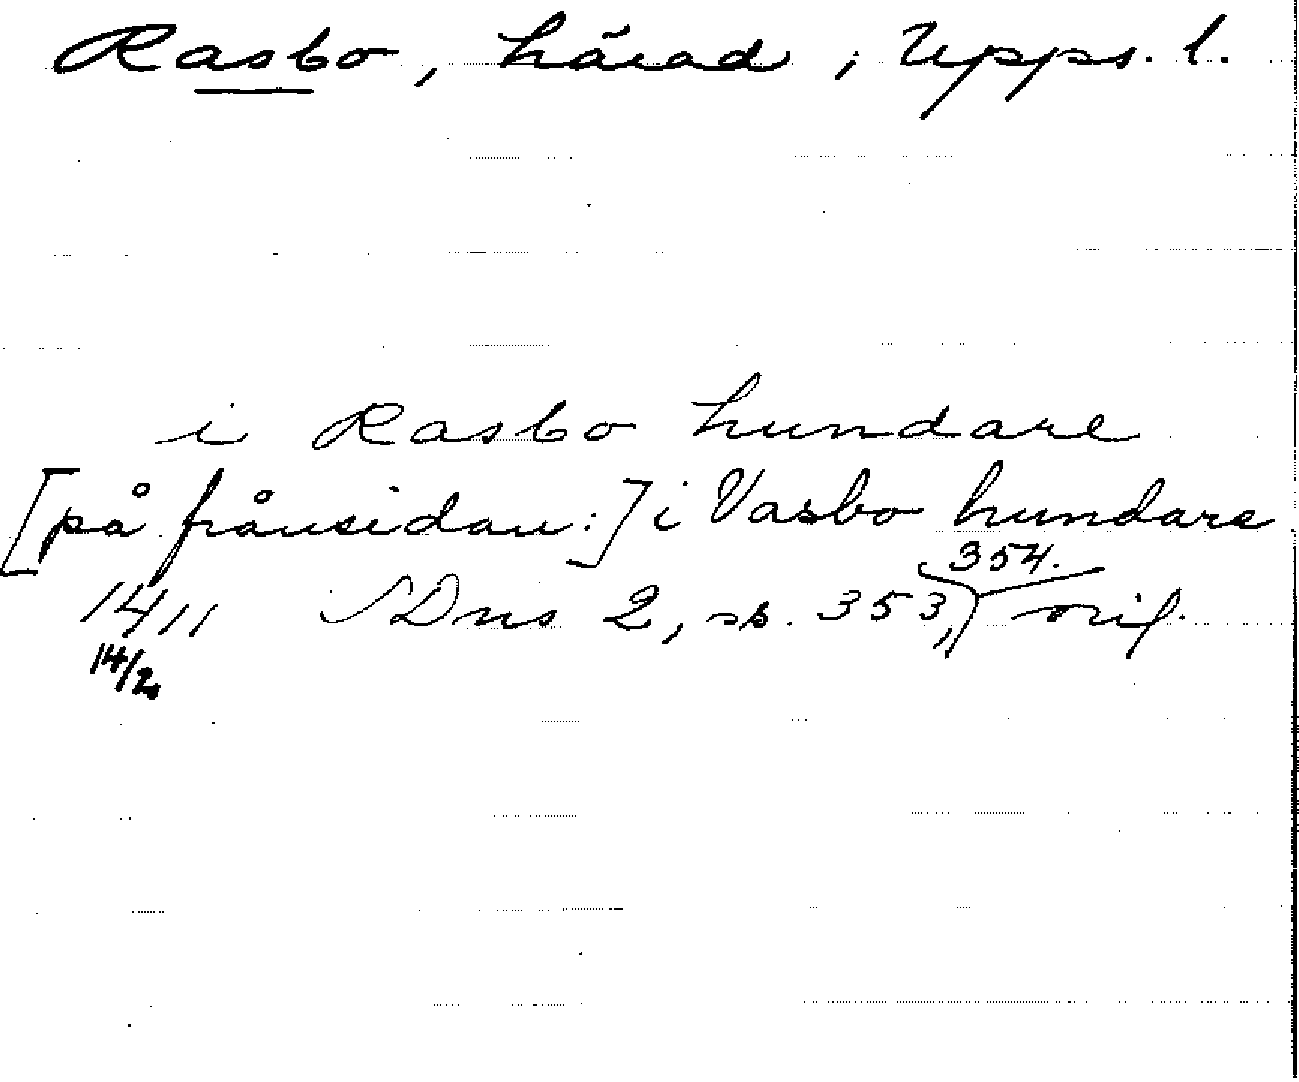 Rasbo, härad, Upps. l.
i Rasbo hundare
[på frånsidan:] i Vasbo hundare
354.
1411 SDns 2, sb. 353, orig.
14/2